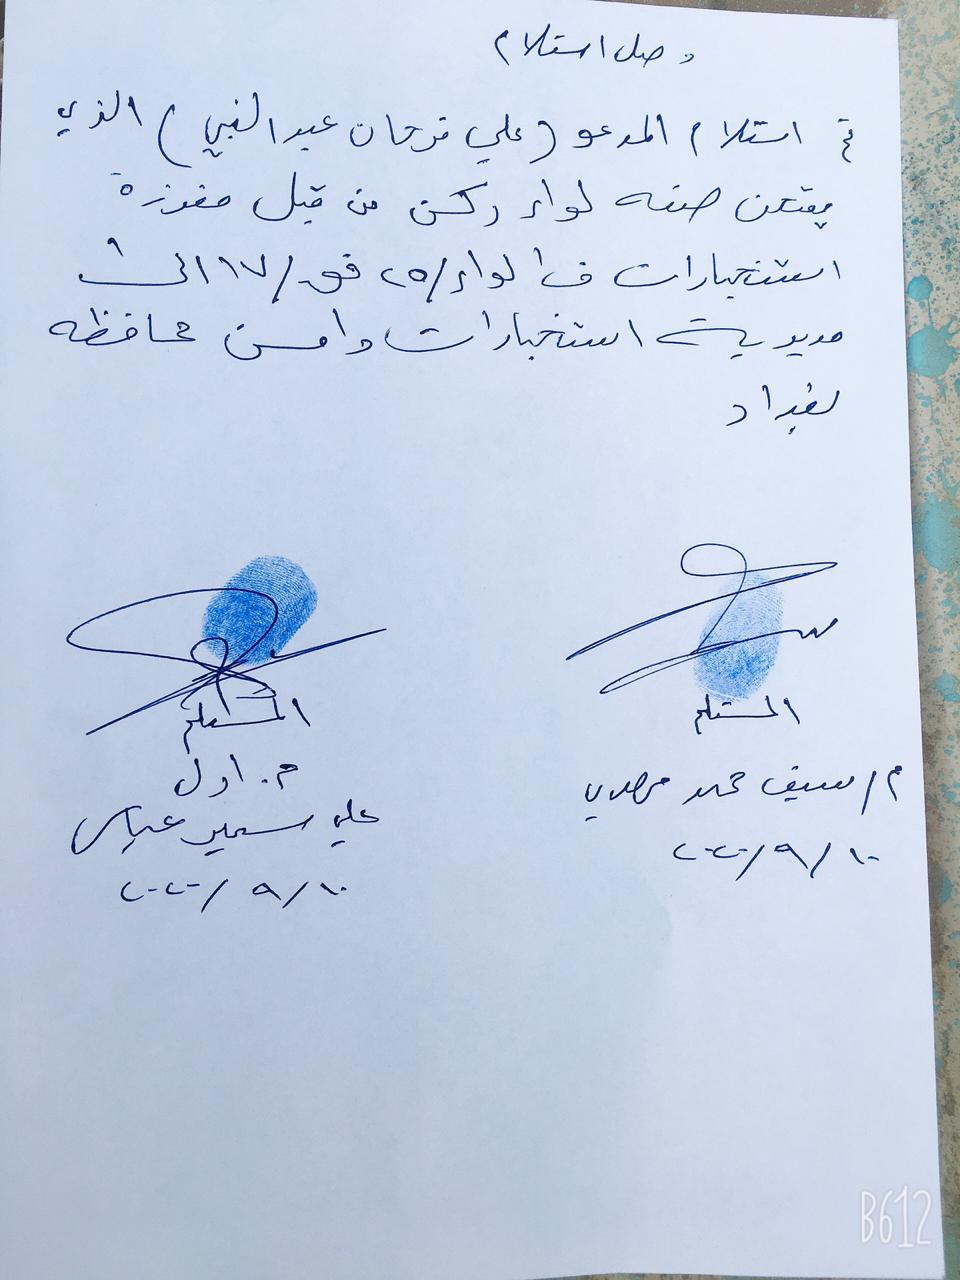 وصل استلام
تم استلام المدعو (علي فرحان عبد النبي) الذي
يمتهن صفه لواء ركن من قبل مفرزة
استخبارات ف١ لواء/٢٥ فق/١٧ الى
مديرية استخبارات وامن محافظه
بغداد
المستلم
م/ سيف محمد مهدي
٢٠٢٠/٩/١٠
المسلم
م. اول
علي سمير عباس
٢٠٢٠/٩/١٠
B612